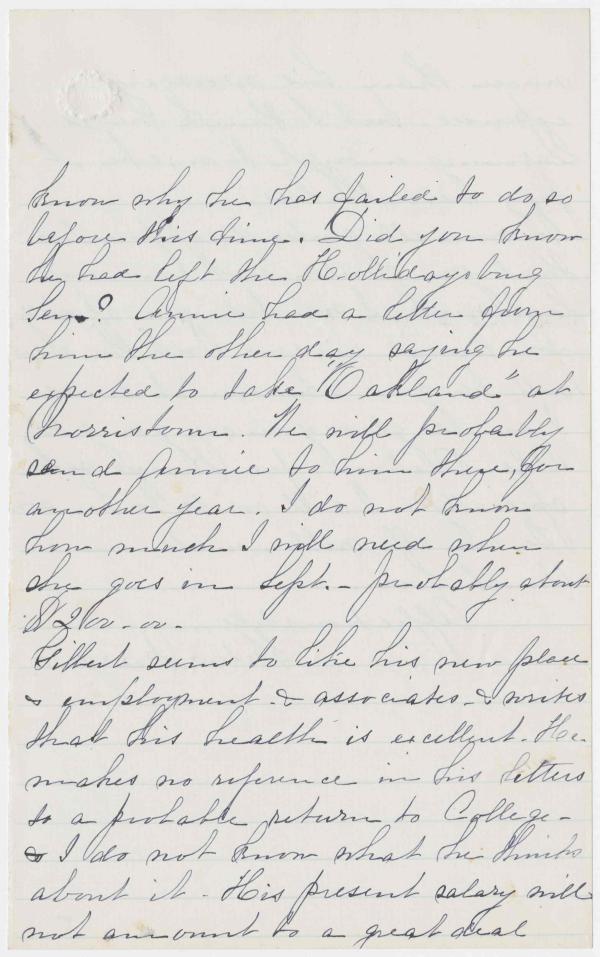 know why he has failed to do so
before this time. Did you know
he had left the Hollidaysburg
Sem.? Annie had a letter from
him the other day saying he
expected to take "Oakland" at
Norristown. We will probably
send Annie to him there, for
another year. I do not know
how much I will need when
she goes in Sept. - probably about
$200-00-
Gilbert seems to like his new place
& employment - & associates - & writes
that his health is excellent. He
makes no reference in his letters
to a probable return to College -
& I do not know what he thinks
about it - His present salary will
not amount to a great deal